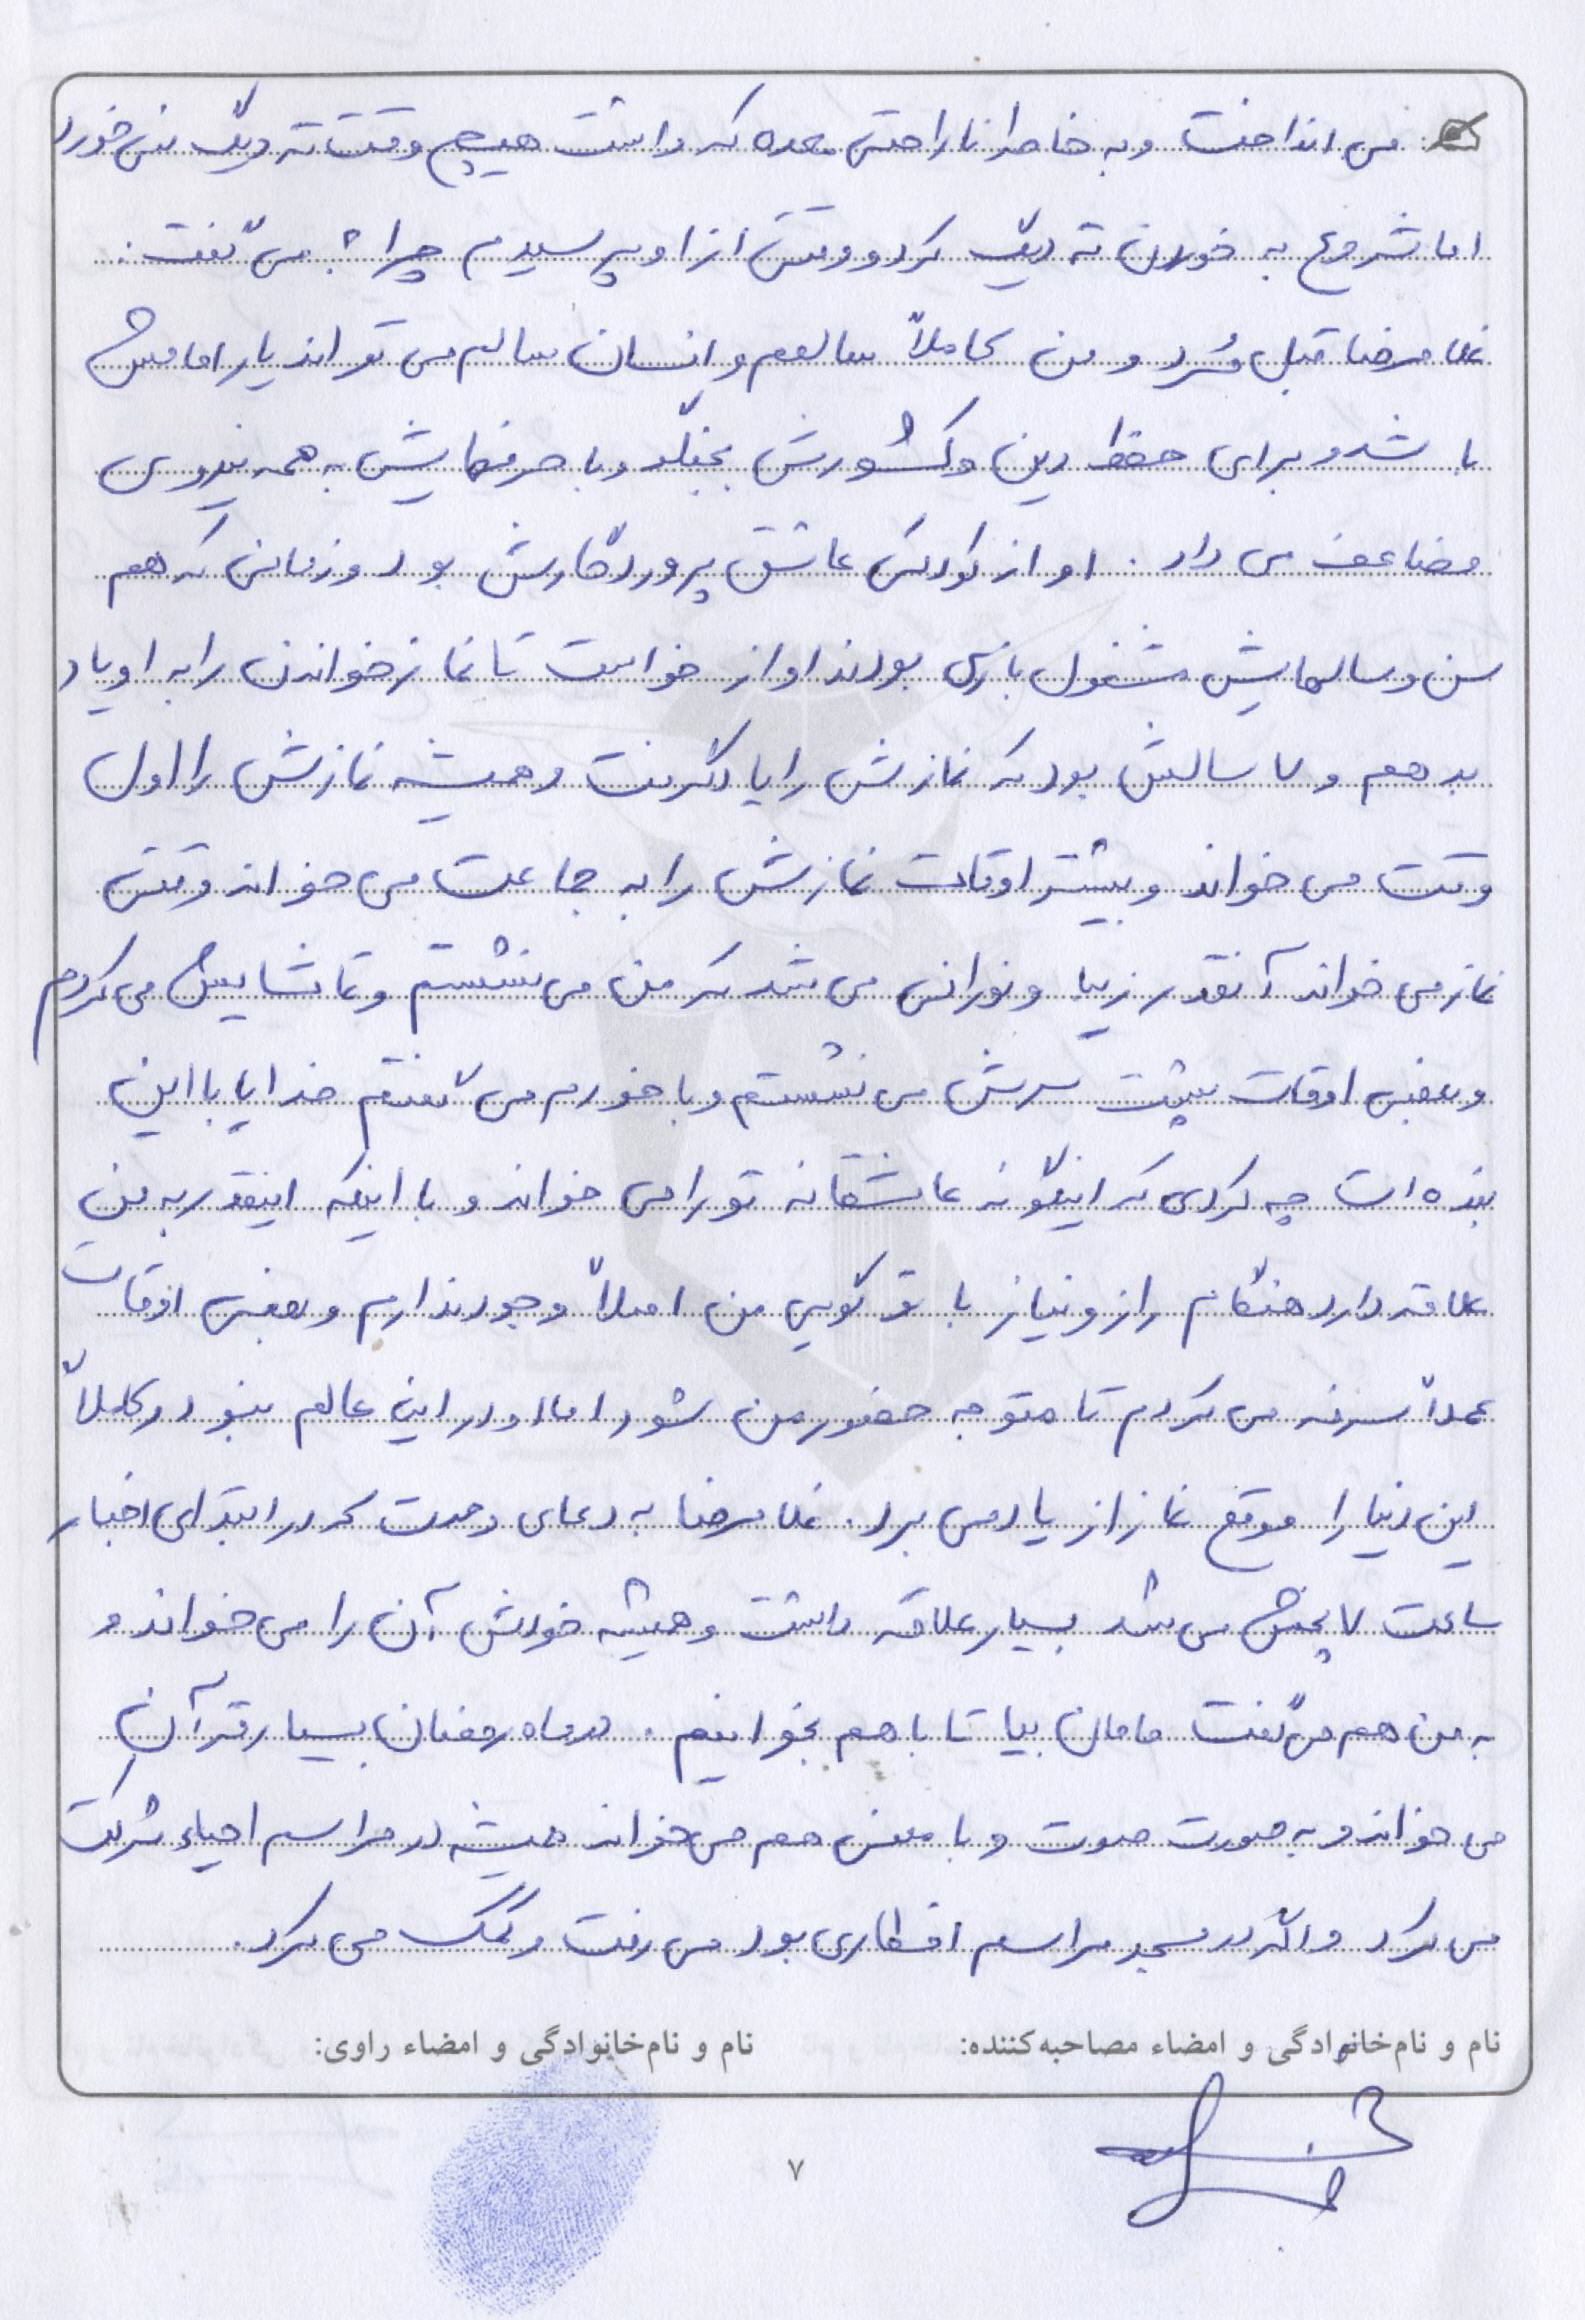 می انداخت و به خاطر ناراحتی معده که داشت هیچ وقت ته دیگ نمی خورد
اما شروع به خوردن ته دیگ کرد و وقتی از او پرسیدم چرا؟ می گفت:
غلامرضا قبل مُرد و من کاملاً سالمم و انسان سالم می تواند یار امامش
باشد و برای حفظ دین و کشورش بجنگد و با حرفهایش به همه نیروی
مضاعف می داد. او از کودکی عاشق پروردگارش بود و زمانی که هم
سن و سالهایش مشغول بازی بودند او از خواست تا نماز خواندن را به او یاد
بدهم و ۷ سالش بود که نمازش را یاد گرفت و همیشه نمازش را اول
وقت می خواند و بیشتر اوقات نمازش را به جماعت می خواند وقتی
نماز می خواند آنقدر زیبا و نورانی می شد که من می نشستم و تماشایش می کردم
و بعضی اوقات پشت سرش می نشستم و با خودم می گفتم خدایا با این
بنده ات چه کردی که اینگونه عاشقانه تو را می خواند و با اینکه اینقدر به من
علاقه دارد هنگام راز و نیاز با تو گویی من اصلاً وجود ندارم و بعضی اوقات
عمداً سرفه می کردم تا متوجه حضور من شود اما او در این عالم نبود و کاملاً
این دنیا را موقع نماز از یاد می برد. غلامرضا به دعای وحدت که در ابتدای اخبار
ساعت ۷ پخش می شد بسیار علاقه داشت و همیشه خودش آن را می خواند و
به من هم می گفت مامان بیا تا با هم بخوانیم. در ماه رمضان بسیار قرآن
می خواند و به صورت صوت و با معنی هم می خواند همیشه در مراسم احیاء شرکت
می کرد و اگر در مسجد مراسم افطاری بود می رفت و کمک می کرد.
نام و نام‌خانوادگی و امضاء مصاحبه‌کننده:
نام و نام‌خانوادگی و امضاء راوی:
۷